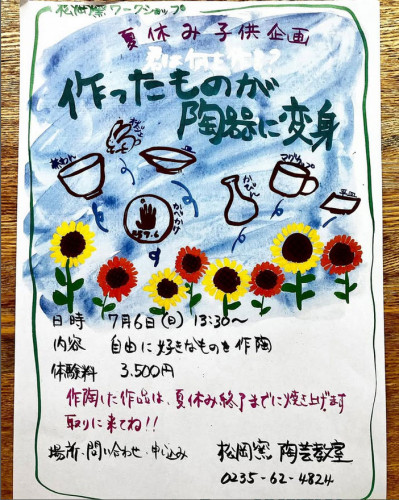 松岡窯ワークショップ
夏休み子供企画
君は何を作る?
作ったものが
陶器に変身
茶わん
皿
マグカップ
平皿
かびん
かべかけ
日時 7月6日(日) 13:30〜
内容 自由に好きなものを作陶
体験料 3,500円
作陶した作品は、夏休み終了までに焼き上げます
取りに来てね!!
場所・問い合わせ・申し込み 松岡窯 陶芸教室
0235-62-4824